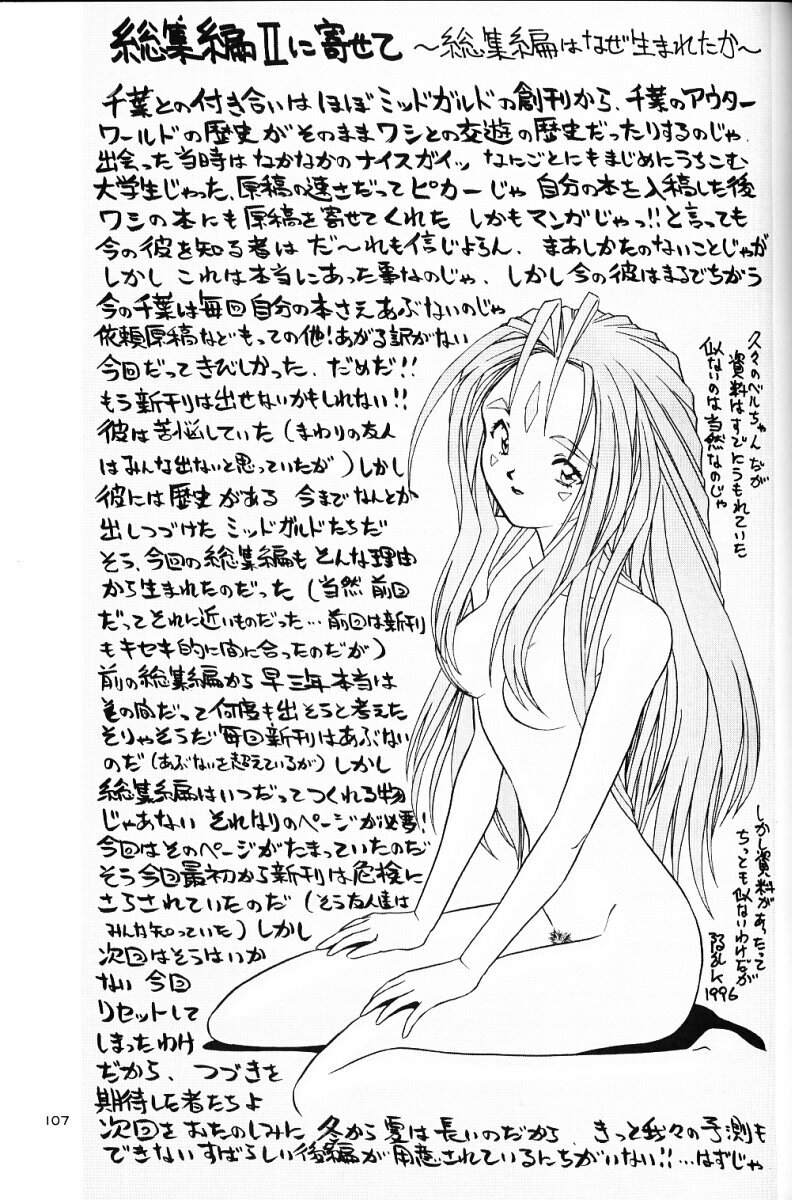 総集編Ⅱに寄せて 〜総集編はなぜ生まれたか〜
千葉との付き合いはほぼミッドガルドの創刊から、千葉のアウター
ワールドの歴史がそのままワシとの交遊の歴史だったりするのじゃ.
出会った当時はなかなかのナイスガイッ なにごとにもまじめにうちこむ
大学生じゃった、原稿の速さだってピカ一じゃ 自分の本を入稿した後
ワシの本にも原稿を寄せてくれた しかもマンガじゃっ!!と言っても
今の彼を知る者は だ〜れも信じよらん、まあしかたのないことじゃが
しかし これは本当にあった事なのじゃ、しかし今の彼はまるでちがう
今の千葉は毎回自分の本さえあぶないのじゃ
依頼原稿などもっての他!あがる訳がない
今回だってきびしかった、だめだ!!
もう新刊は出せないかもしれない!!
彼は苦悩していた(まわりの友人
はみんな出ないと思っていたが)しかし
彼には歴史がある 今までなんとか
出しつづけたミッドガルドたちだ
そう、今回の総集編もそんな理由
から生まれたのだった(当然前回
だってそれに近いものだった…前回は新刊
もキセキ的に間に合ったのだが)
前の総集編から早三年本当は
その間だって何度も出そうと考えた
そりゃそうだ毎回新刊はあぶない
のだ(あぶないを超えているが)しかし
総集編はいつだってつくれる物
じゃあない それなりのページが必要!
今回はそのページがたまっていたのだ
そう今回最初から新刊は危険に
さらされていたのだ(そう友人達は
みんな知っていた)しかし
次回はそうはいか
ない 今回
リセットして
しまったわけ
だから、つづきを
期待した者たちよ
次回をおたのしみに 冬から夏は長いのだから、きっと我々の予測も
できないすばらしい後編が用意されているにちがいない!!…はずじゃ
久々のベルちゃんだが
資料はすでにうもれていた
似ないのは当然なのじゃ
しかし資料があったって
ちっとも似ないわけだが
1996
107